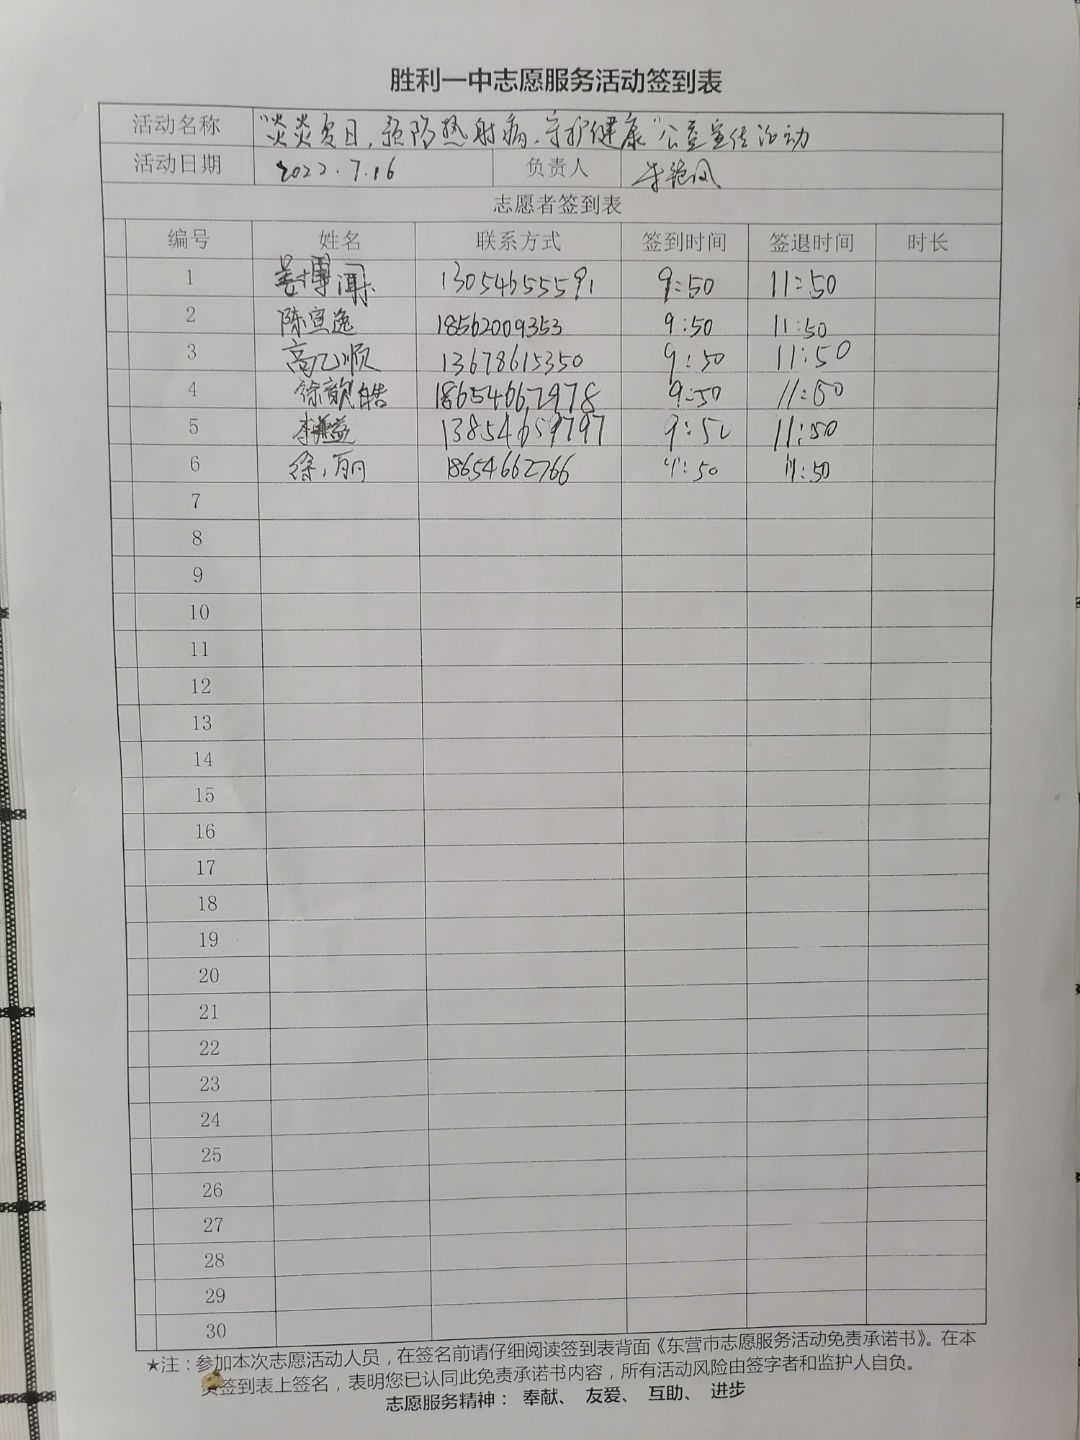 胜利一中志愿服务活动签到表
活动名称 "炎炎夏日,预防热射病、守护健康"公益宣传活动
活动日期 2022.7.16 负责人 李艳凤
志愿者签到表
编号 姓名 联系方式 签到时间 签退时间 时长
1 博闻 13054655591 9:50 11:50
2 陈宣逸 18562009353 9:50 11:50
3 高乙顺 13678615350 9:50 11:50
4 徐歆皓 18654667978 9:50 11:50
5 李益 13854659797 9:50 11:50
6 徐丽 18654662766 9:50 11:50
7
8
9
10
11
12
13
14
15
16
17
18
19
20
21
22
23
24
25
26
27
28
29
30
★注:参加本次志愿活动人员,在签名前请仔细阅读签到表背面《东营市志愿服务活动免责承诺书》。在本
签到表上签名,表明您已认同此免责承诺书内容,所有活动风险由签字者和监护人自负。
志愿服务精神: 奉献、 友爱、 互助、 进步